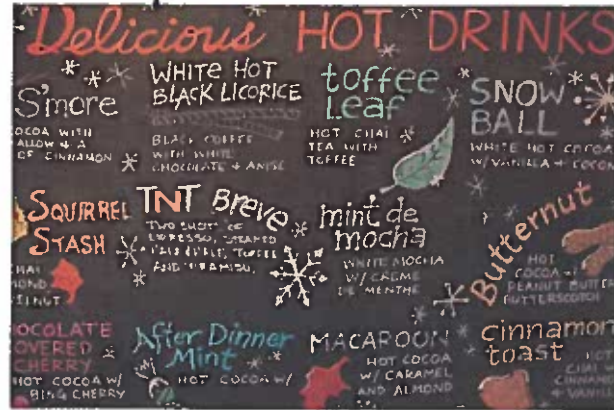 Delicious HOT DRINKS
S'more
COCOA WITH
ALLOW + A
OF CINNAMON
WHITE HOT
BLACK LICORICE
BLACK COFFEE
WITH WHITE
CHOCOLATE + ANISE
toffee
Leaf
HOT CHAI
TEA WITH
TOFFEE
SNOW
BALL
WHITE HOT COCOA
W/ VANILLA + COCO
SQUIRREL
STASH
CHAI
MOND
TNT Breve
TWO SHOTS OF
ESPRESSO, STEAMED
TOFFEE
AND TIRAMISU.
mint de
mocha
WHITE MOCHA
W/ CREME
DE MENTHE
Butternut
HOT
COCOA
PEANUT BUTTER
BUTTERSCOTCH
OCOLATE
OVERED
CHERRY
HOT COCOA W/
BING CHERRY
After Dinner
Mint
HOT COCOA W/
MACAROON
HOT COCOA
W/ CARAMEL
AND ALMOND
cinnamon
toast
HOT
CHAI
CINNAM
+ VANIL